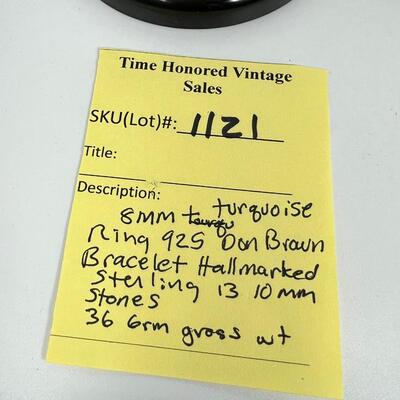 Time Honored Vintage
Sales
SKU(Lot)#: 1121
Title:
Description: turquoise
8mm
Ring 925 Don Braun
Bracelet Hallmarked
Sterling 13 10mm
Stones
36 Grm gross wt